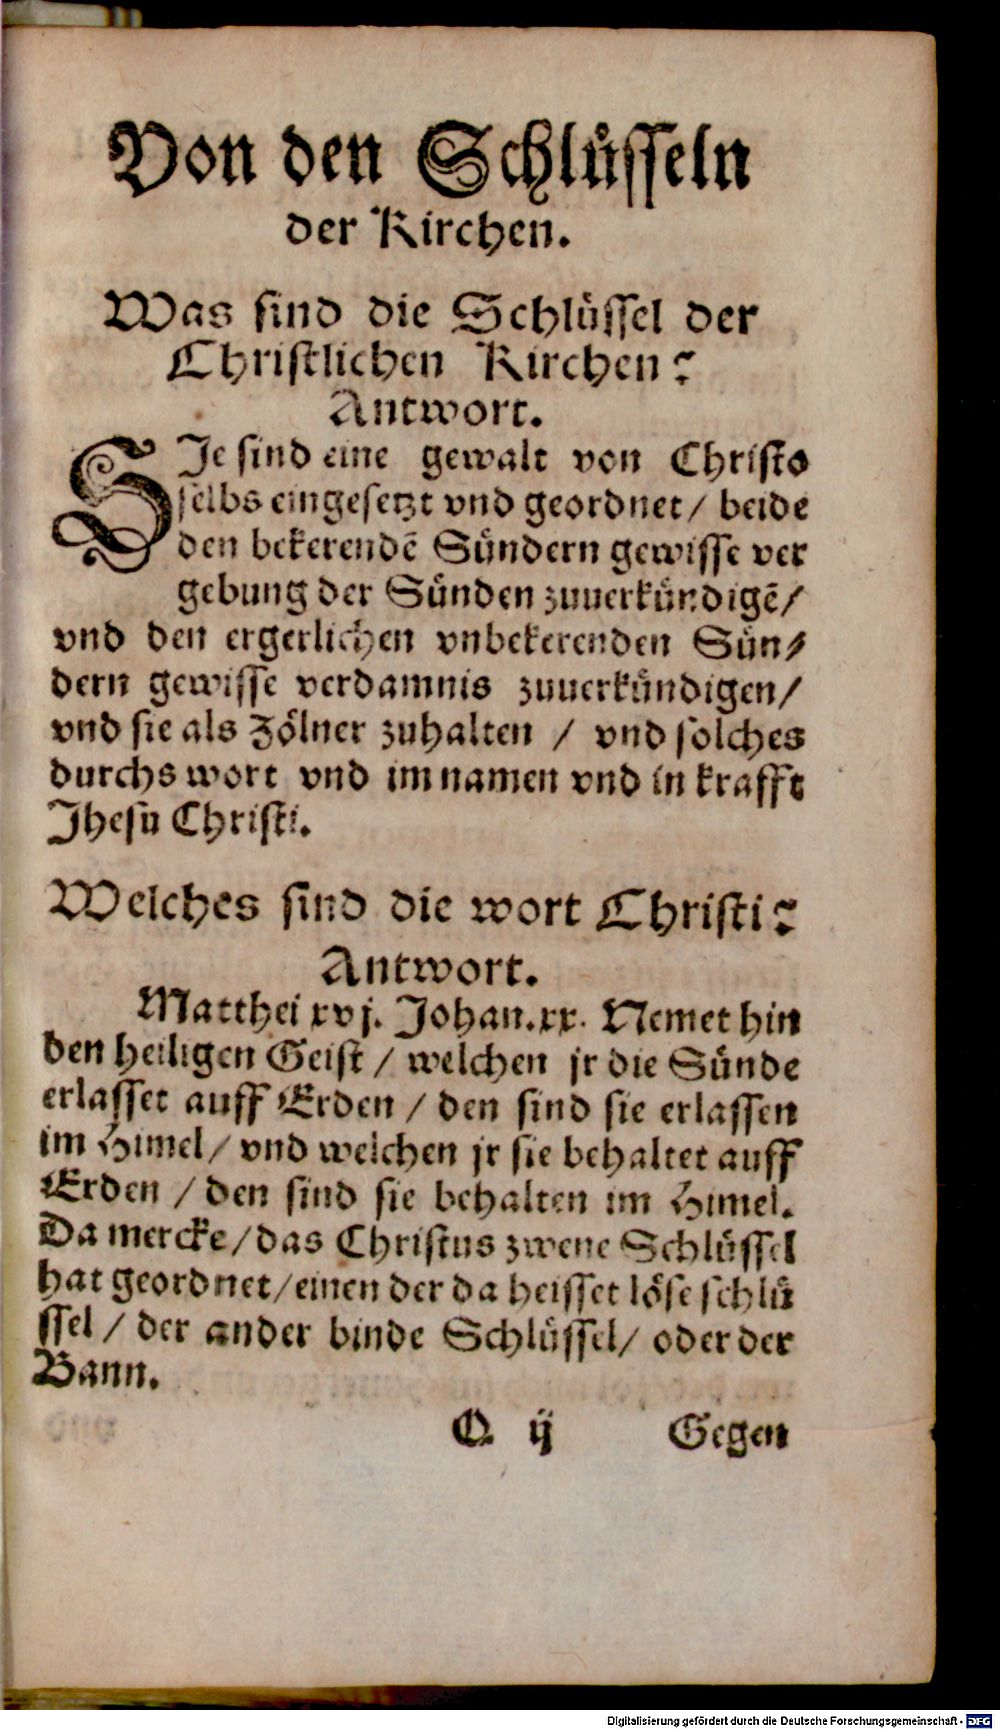 Von den Schlüsseln
der Kirchen.
Was sind die Schlüssel der
Christlichen Kirchen?
Antwort.
SJe sind eine gewalt von Christo
selbs eingesetzt vnd geordnet/ beide
den bekerendē Sündern gewisse ver
gebung der Sünden zuuerkündigē/
vnd den ergerlichen vnbekerenden Sün⸗
dern gewisse verdamnis zuuerkündigen/
vnd sie als Zölner zuhalten / vnd solches
durchs wort vnd im namen vnd in krafft
Jhesu Christi.
Welches sind die wort Christi?
Antwort.
Matthei xvj. Johan.xx. Nemet hin
den heiligen Geist / welchen jr die Sünde
erlasset auff Erden / den sind sie erlassen
im Himel/ vnd welchen jr sie behaltet auff
Erden / den sind sie behalten im Himel.
Da mercke/das Christus zwene Schlüssel
hat geordnet/einen der da heisset löse schlü
ssel / der ander binde Schlüssel/ oder der
Bann.
Q ij Gegen
Digitalisierung gefördert durch die Deutsche Forschungsgemeinschaft - DFG